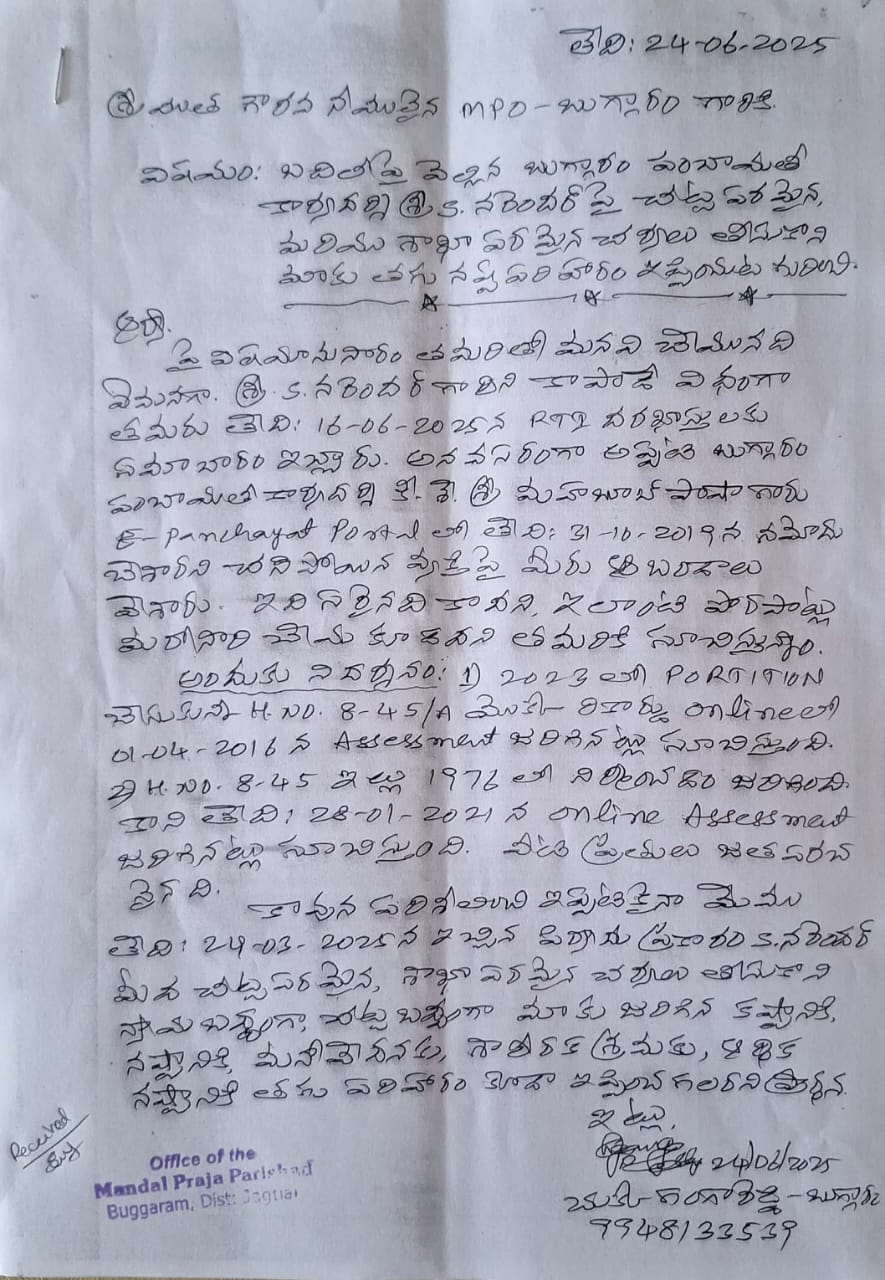 తేది: 24-06-2025
శ్రీయుత గౌరవనీయులైన MPO - బుగ్గారం గారికి.
విషయం: బదిలీపై వెళ్లిన బుగ్గారం పంచాయతీ
కార్యదర్శి శ్రీ K. నరేందర్ పై చట్ట పరమైన,
మరియు శాఖా పరమైన చర్యలు తీసుకొని
మాకు తగు నష్ట పరిహారం ఇప్పించుట గురించి.
ఆర్యా,
పై విషయానుసారం తమరితో మనవి చేయునది
ఏమనగా. శ్రీ. K. నరేందర్ గారిని కాపాడే విధంగా
తమరు తేది: 16-06-2025న RTI దరఖాస్తులకు
సమాచారం ఇచ్చారు. అనవసరంగా అప్పటి బుగ్గారం
పంచాయితీ కార్యదర్శి కీ. శే. శ్రీ మహబూబ్ పాషా గారు
E-Panchayat Portal లో తేది: 31-10-2019న నమోదు
చేశారని చనిపోయిన వ్యక్తిపై మీరు అబద్దాలు
వేశారు. ఇది సరైనది కాదని, ఇలాంటి పొరపాట్లు
మరోసారి చేయకూడదని తమరికి సూచిస్తున్నాం.
అందుకు నిదర్శనం: 1) 2023 లో PORTITION
చేసుకున్న H.NO. 8-45/A యొక్క రికార్డు online లో
01-04-2016 న Assessment జరిగినట్లు సూచిస్తుంది.
2) H.NO. 8-45 ఇల్లు 1976 లో నిర్మించడం జరిగింది.
కాని తేది: 28-01-2021 న online Assessment
జరిగినట్లు సూచిస్తుంది. వీటి ప్రతులు జతపరచ
నైనది.
కావున పరిశీలించి ఇప్పటికైనా మేము
తేది: 24-03-2025న ఇచ్చిన ఫిర్యాదు ప్రకారం K.నరేందర్
మీద చట్టపరమైన, శాఖా పరమైన చర్యలు తీసుకొని
న్యాయ బద్ధంగా, చట్ట బద్ధంగా మాకు జరిగిన కష్టానికి,
నష్టానికి, మనోవేదనకు, శారీరక శ్రమకు, ఆర్థిక
నష్టానికి తగు పరిహారం కూడా ఇప్పించగలరని ప్రార్థన.
ఇట్లు,
24/06/2025
చుక్క గంగారెడ్డి - బుగ్గారం
9948133539
Received
Office of the
Mandal Praja Parishad
Buggaram, Dist: Jagtial